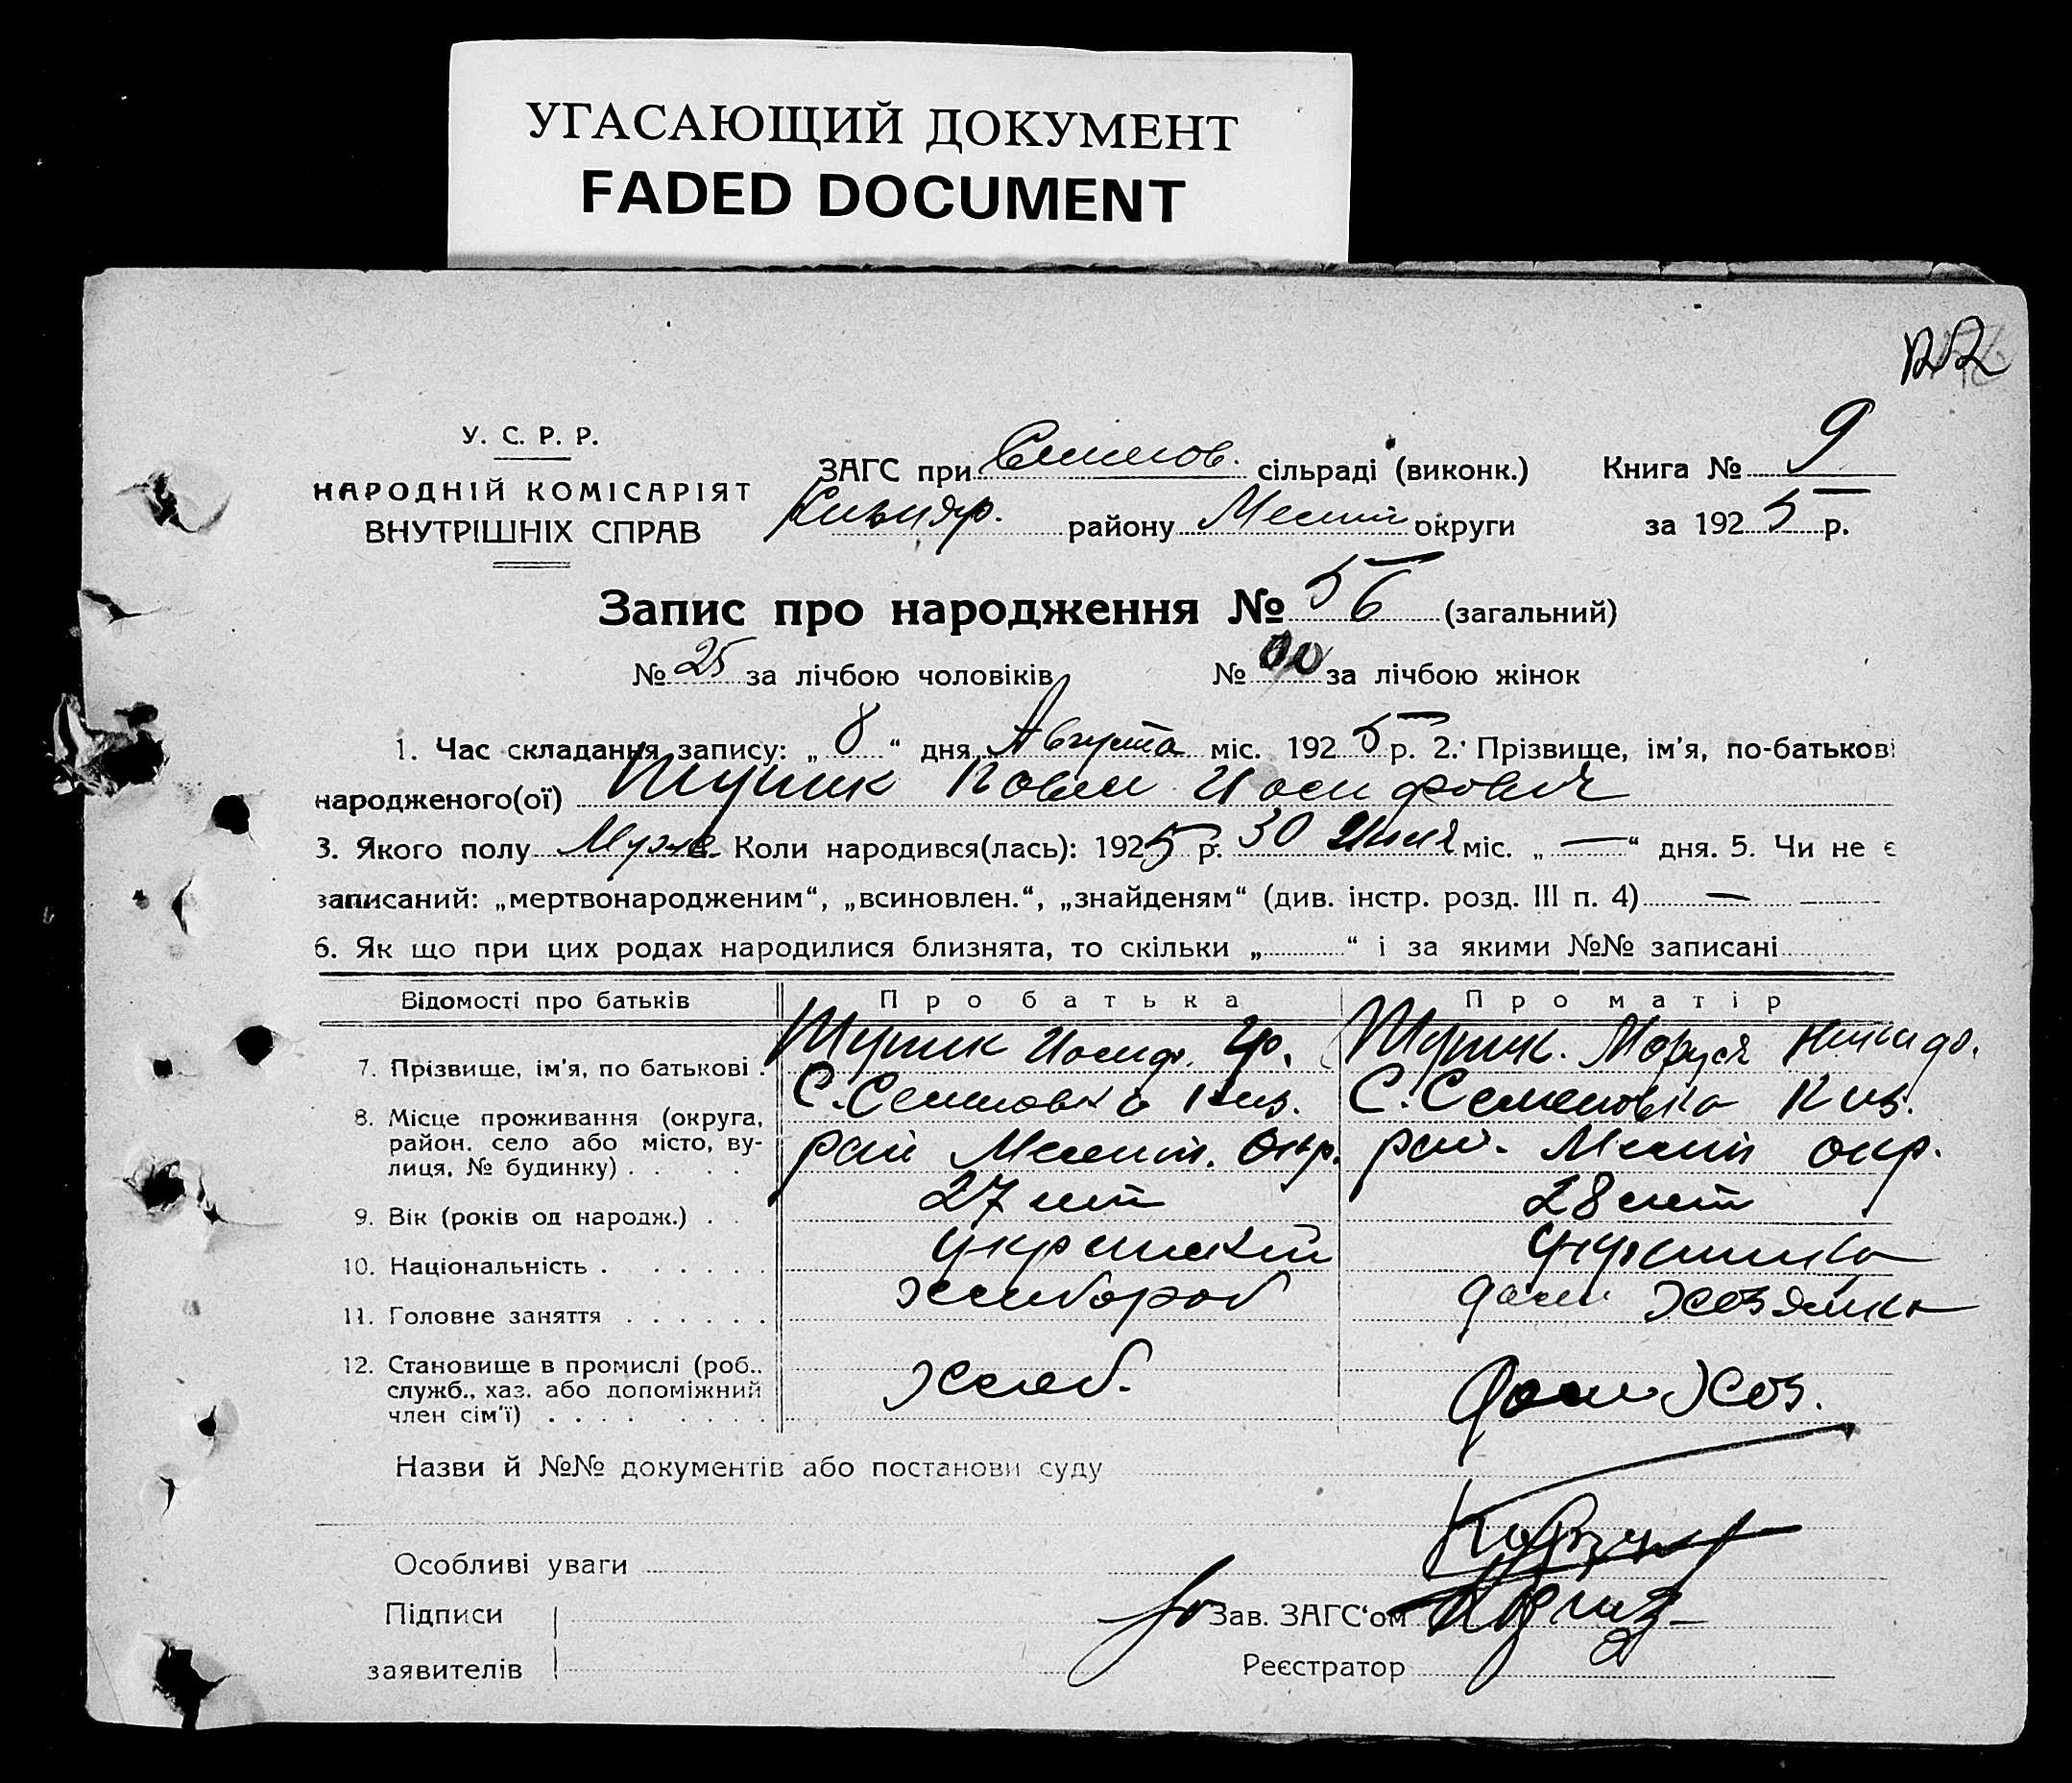 УГАСАЮЩИЙ ДОКУМЕНТ
FADED DOCUMENT
122
У. С. Р. Р.
НАРОДНІЙ КОМІСАРІЯТ
ВНУТРІШНІХ СПРАВ
ЗАГС при сільраді (виконк.) Книга № 9
району округи за 1925 р.
Запис про народження № 56 (загальний)
№ 25 за лічбою чоловіків № за лічбою жінок
1. Час складання запису: „ 8 “ дня Августа міс. 1925 р. 2. Прізвище, ім'я, по-батькові
народженого(ої) Иосифович
3. Якого полу Муж. Коли народився(лась): 1925 р. 30 міс. „ — “ дня. 5. Чи не є
записаний: „мертвонародженим“, „всиновлен.“, „знайденям“ (див. інстр. розд. III п. 4) —
6. Як що при цих родах народилися близнята, то скільки „ “ і за якими №№ записані
Відомості про батьків Про батька Про матір
7. Прізвище, ім'я, по батькові . Иосиф. Маруся
8. Місце проживання (округа, С. Семеновка Киз. С. Семеновка Киз.
район, село або місто, ву- рай Мелит. Окр. рай. Мелит окр.
лиця, № будинку) . . . .
9. Вік (років од народж.) . . 27 лет 28 лет
10. Національність . . . . . . украинка
11. Головне заняття . . . . . . хлебороб дом хозяйка
12. Становище в промислі (роб., хлеб. дом хоз.
служб., хаз. або допоміжний
член сім'ї) . . . . . . . .
Назви й №№ документів або постанови суду
Особливі уваги
Підписи Зав. ЗАГС'ом
заявителів Реєстратор